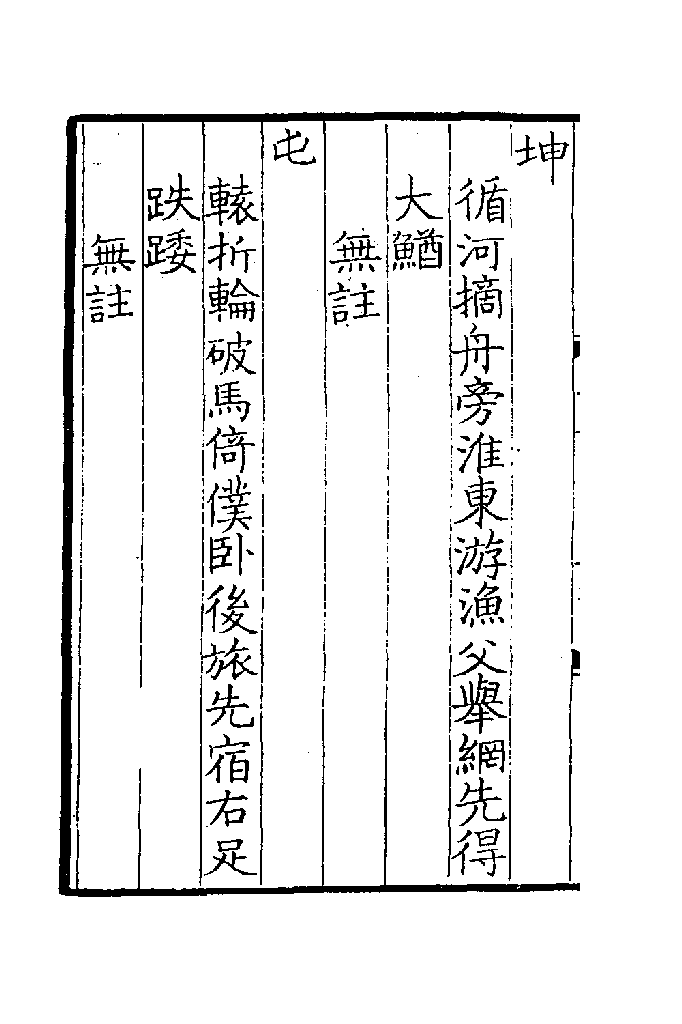 坤
循河摘舟旁淮東游漁父舉網先得
大鰌
無註
屯
轅折輪破馬倚僕卧後旅先宿右足
跌踒
無註